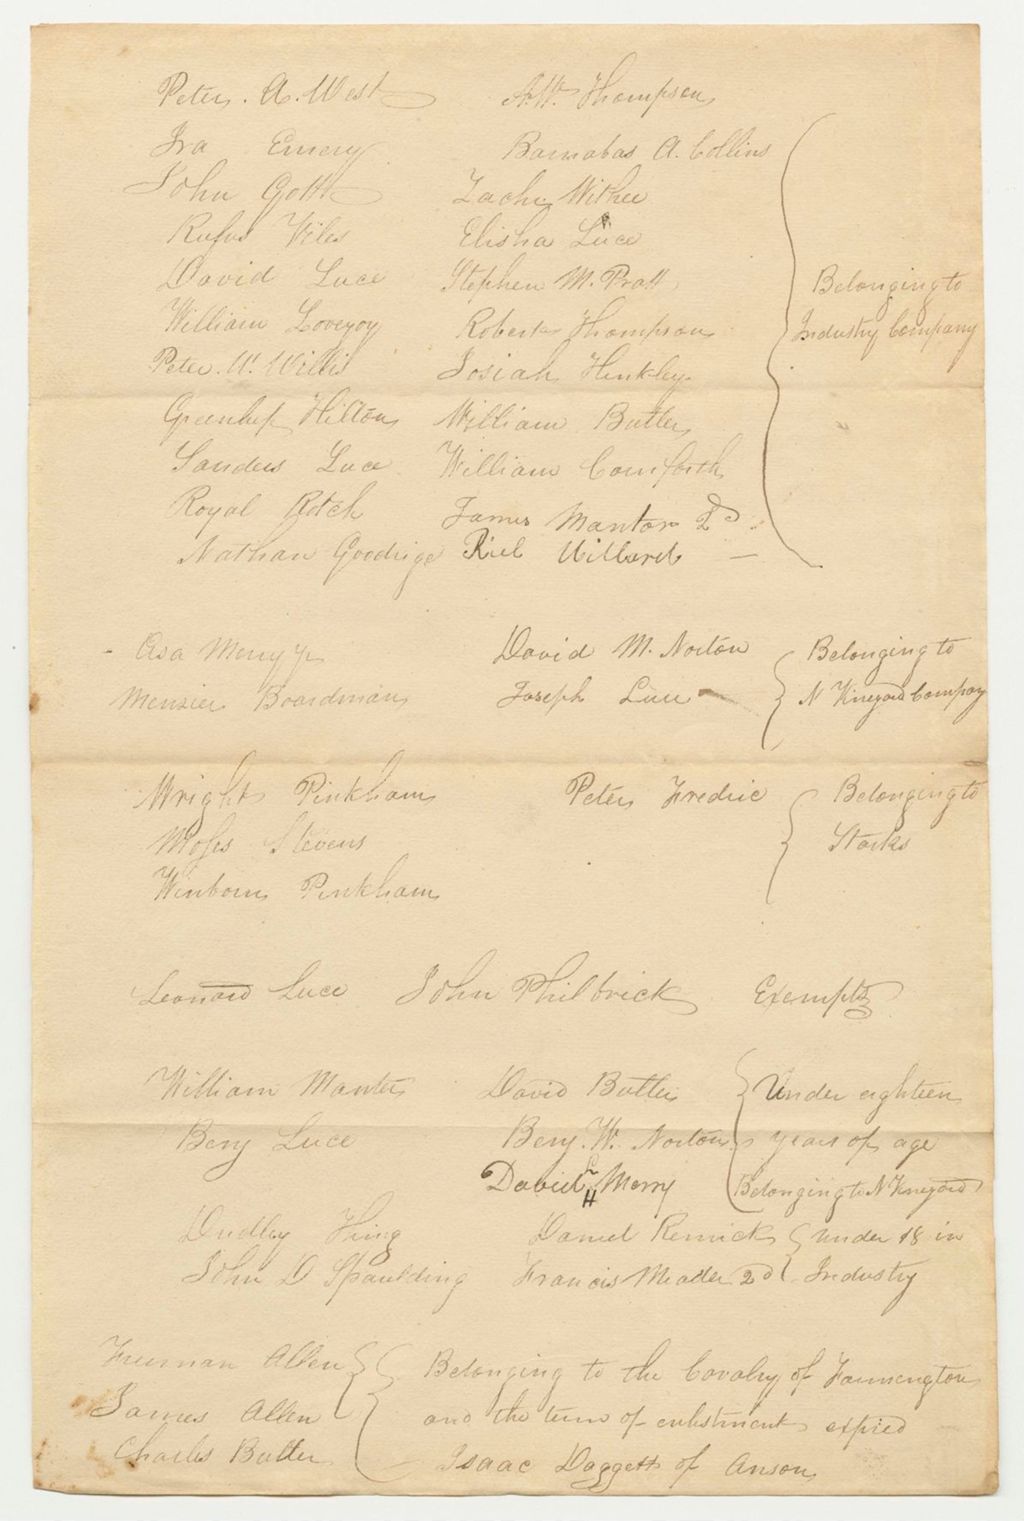 Peter. A. West A. W. Thompson
Ira Emery Barnabas A. Collins
John Gott Zachr. Withee
Rufus Viles Elisha Luce
David Luce Stephen M. Pratt
Belonging to
William Lovejoy Robert Thompson
Industry Company
Peter. W. Willis Josiah Hinkley
Greenlief Hilton William Butler
Sanders Luce William Cornforth
Royal Rotch James Manter 2d
Nathan Goodrige Riel Willard
Asa Merry Jr David M. Norton Belonging to
Menzier Boardman Joseph Luce N Vineyard Company
Wright Pinkham Peter Fredric Belonging to
Moses Stevens Starks
Winborn Pinkham
Leonard Luce John Philbrick Exempts
William Manter David Butler Under eighteen
Benj Luce Benj. W. Norton years of age
David H Merry Belonging to N Vineyard
Dudley Thing Daniel Remick under 18 in
John D Spaulding Francis Meader 2d Industry
Freeman Allen Belonging to the Cavalry of Farmington
James Allen and the term of enlistment expired
Charles Butler Isaac Daggett of Anson